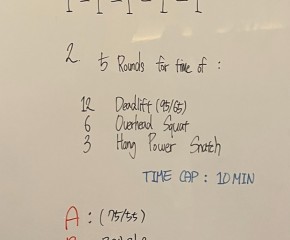 1 - 1 - 1 - 1 - 1
2. 5 Rounds for time of :
12 Deadlift (95/65)
6 Overhead Squat
3 Hang Power Snatch
TIME CAP : 10 MIN
A : (75/55)